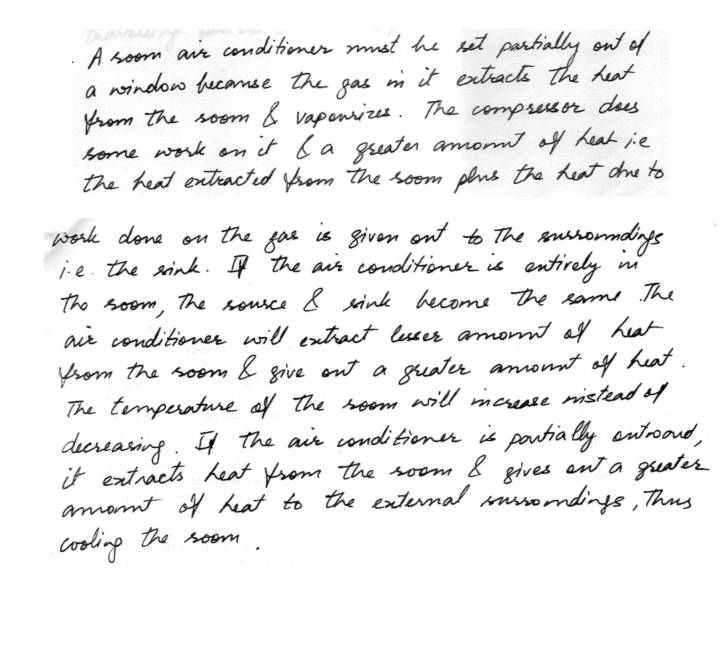 A room air conditioner must be set partially out of
a window because the gas in it extracts the heat
from the room & vapourizes. The compressor does
some work on it & a greater amount of heat i.e
the heat extracted from the room plus the heat due to
work done on the gas is given out to the surroundings
i.e. the sink. If the air conditioner is entirely in
the room, the source & sink become the same. The
air conditioner will extract lesser amount of heat
from the room & give out a greater amount of heat.
The temperature of the room will increase instead of
decreasing. If the air conditioner is partially outward,
it extracts heat from the room & gives out a greater
amount of heat to the external surroundings, thus
cooling the room.